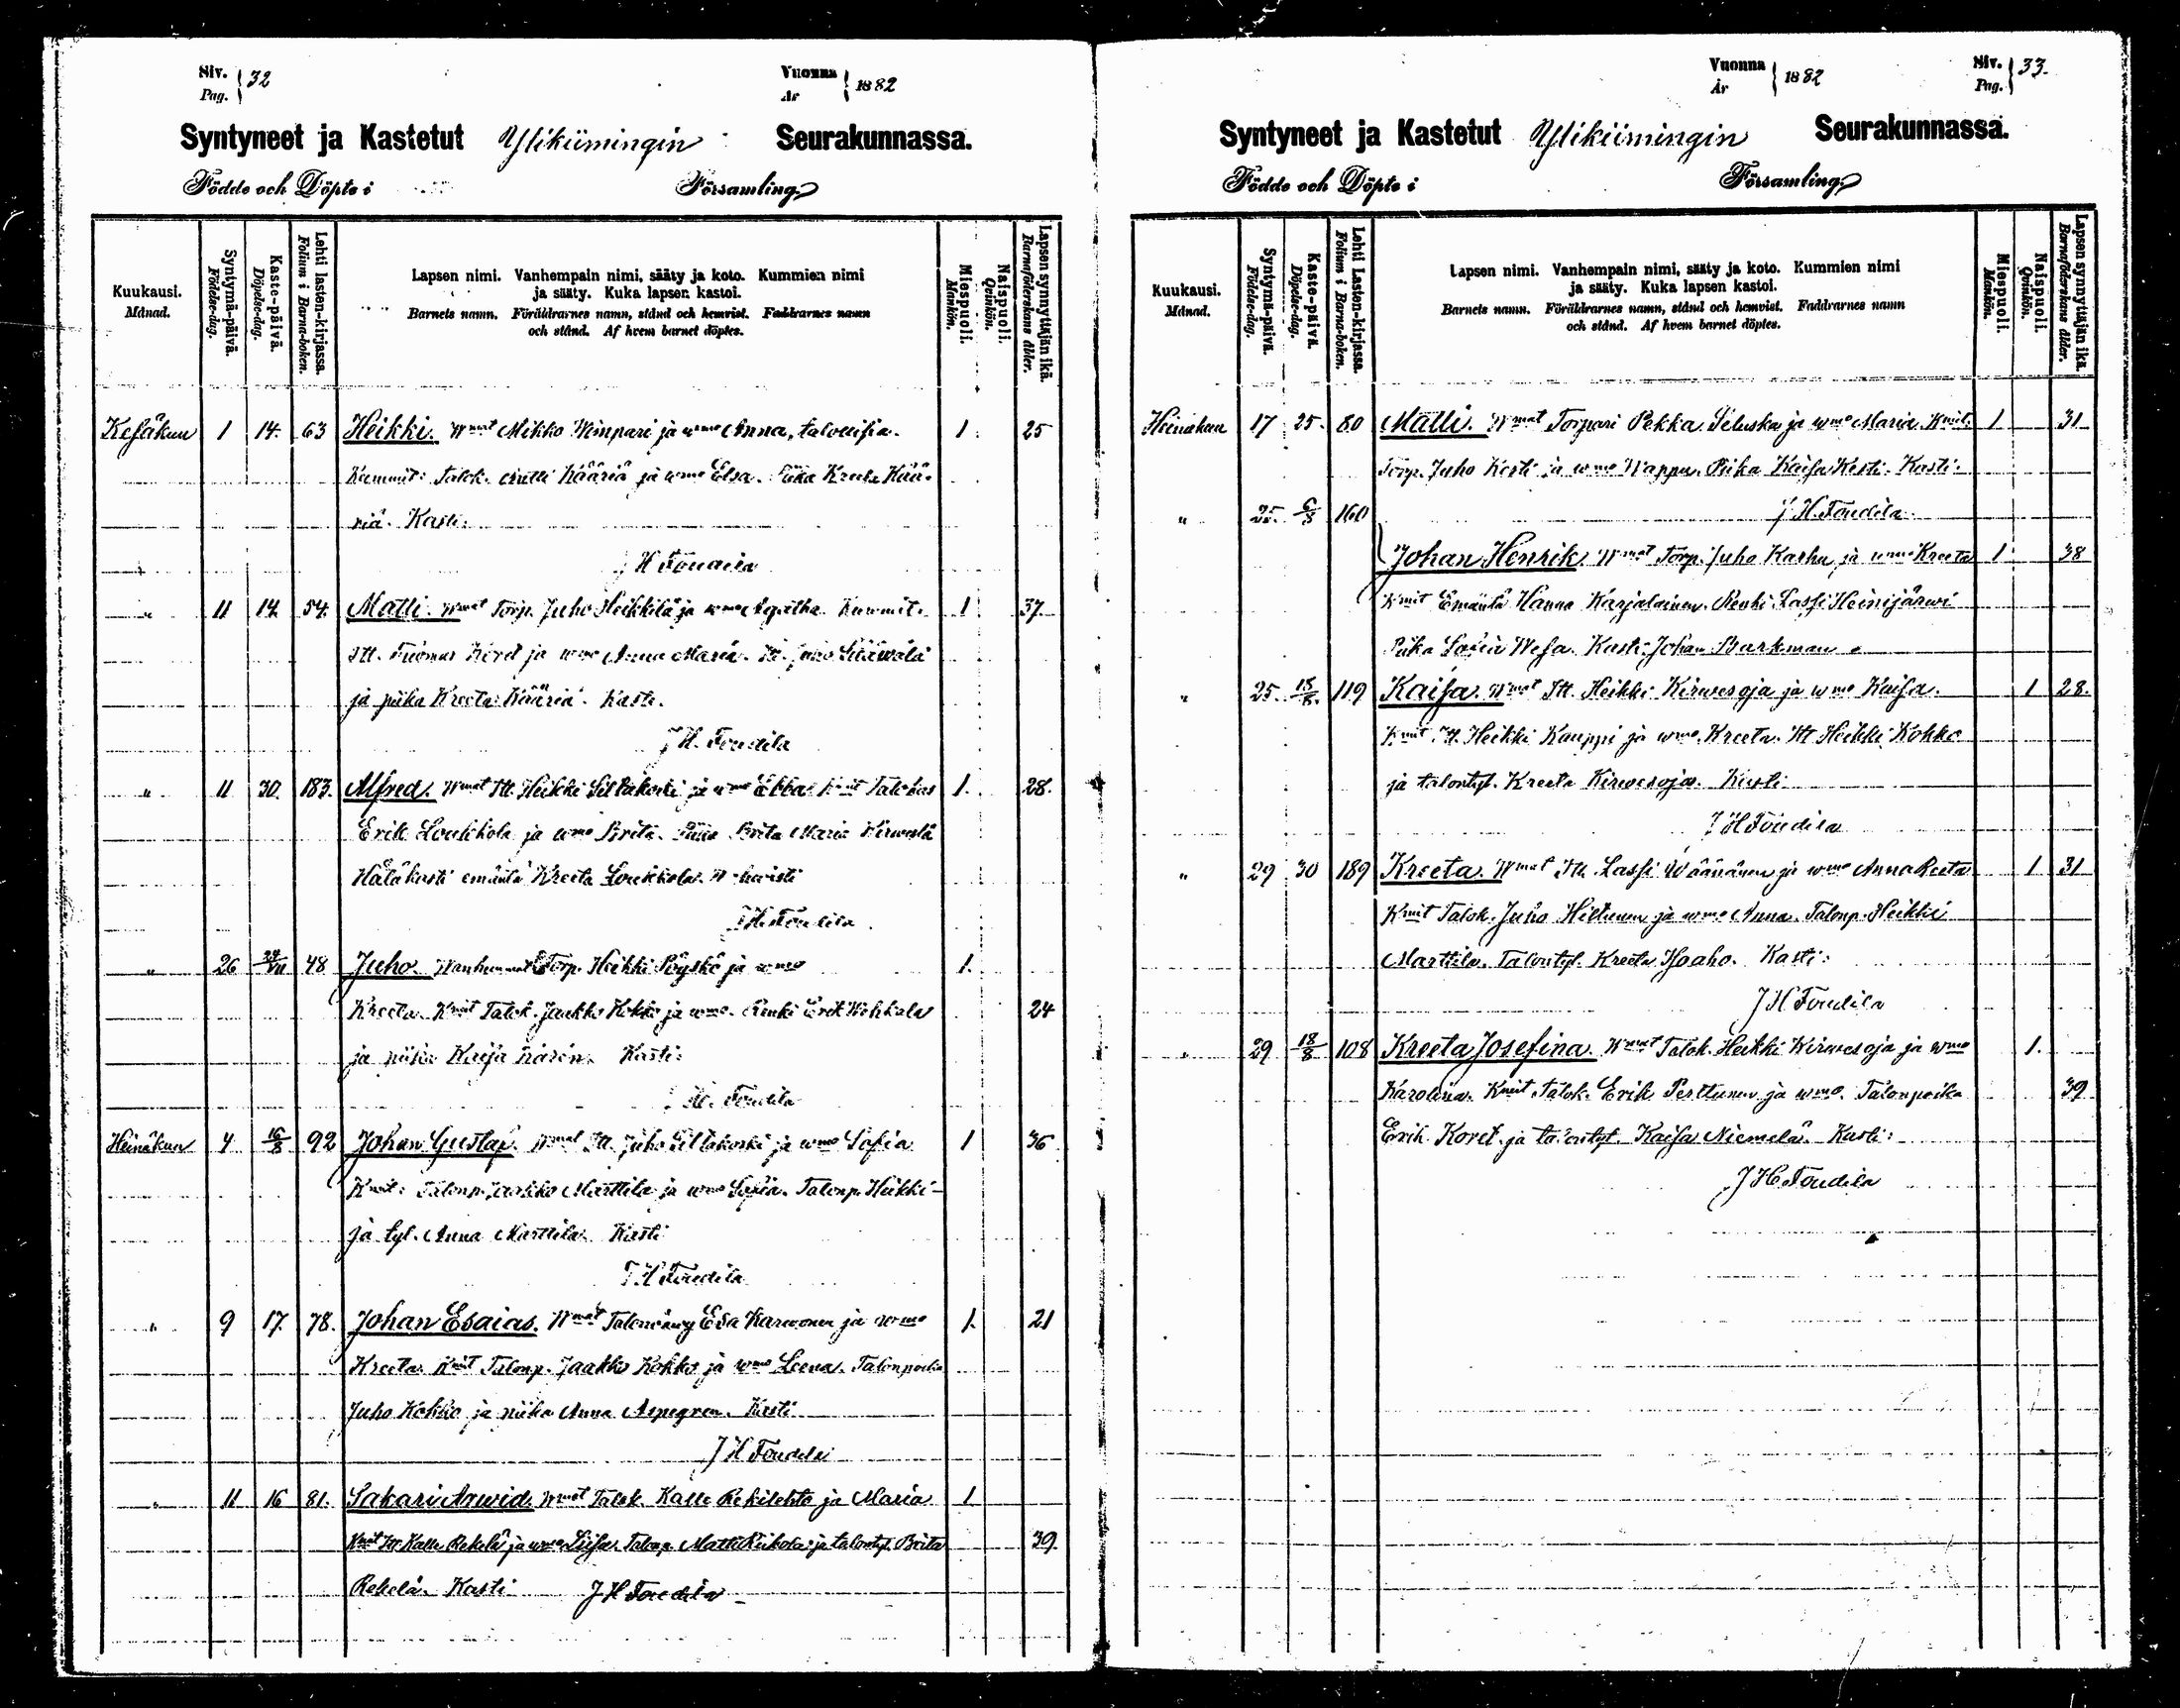 Siv. Pag. } 32
Vuonna År } 1882
Syntyneet ja Kastetut Ylikiimingin Seurakunnassa.
Födde och Döpte i Församling
Kuukausi. Månad.
Syntymä-päivä. Födelse-dag.
Kaste-päivä. Döpelse-dag.
Lehti lasten-kirjassa. Folium i Barna-boken.
Lapsen nimi. Vanhempain nimi, sääty ja koto. Kummien nimi
ja sääty. Kuka lapsen kastoi.
Barnets namn. Föräldrarnes namn, stånd och hemvist. Faddrarnes namn
och stånd. Af hvem barnet döptes.
Miespuoli. Mankön.
Naispuoli. Qvinkön.
Lapsen synnyttäjän ikä. Barnaföderskans ålder.
Kesäkuu 1 14. 63 Heikki. Wmat Mikko Wimpari ja wmo Anna, 1 25
Kummit: Talok. Matti Kääriä ja wmo Elsa. Piika Kreeta Kää-
riä. Kasti:
J H Toudila
" 11 14. 54. Matti. Wmat Torp. Juho Heikkilä ja wmo Agatha. Kummit. 1 37.
Itt. Tuomas Koret ja wmo Anna Maria. Itt. Juho
ja piika Kreeta Kääriä. Kasti.
J H. Toudila
" 11 30. 183. Alfred. Wmat Itt. Heikki Siltakoski ja wmo Ebba. Kmit Talokas 1. 28.
Erik Loukkola ja wmo Brita. Piika Brita Maria
Hätäkasti emäntä Kreeta Loukkola.
J H. Toudila
" 26 24/VII 48 Juho. Wanhemmat Torp. Heikki Pöyskö ja wmo 1.
Kreeta. Kmit Talok. Jaakko Kokko ja wmo. Renki Erik 24
ja piika Kaisa Kasti:
J H. Toudila
Heinäkuu 4 16/8 92 Johan Gustaf. Wmat Itt. Juho Siltakoski ja wmo Sofia 1 36.
Kmit: Talonp. Jaakko Marttila ja wmo Sofia. Talonp. Heikki
ja tyt. Anna Marttila. Kasti
J H Toudila
" 9 17. 78. Johan Esaias. Wmat Esa Karvonen ja wmo 1. 21
Kreeta. Kmit Talonp. Jaakko Kokko ja wmo Leena. Talonpoika
Juho Kokko ja piika Anna Aspegren. Kasti
J H Toudila
" 11 16 81. Sakari Arwid. Wmat Talok. Kalle Rekilehto ja Maria 1
Kmit Itt. Kalle Rekelä ja wmo Liisa. Talonp. Matti ja talontyt. Brita 39.
Rekelä. Kasti J H Toudila
Vuonna År } 1882
Siv. Pag. } 33.
Syntyneet ja Kastetut Ylikiimingin Seurakunnassa.
Födde och Döpte i Församling
Kuukausi. Månad.
Syntymä-päivä. Födelse-dag.
Kaste-päivä. Döpelse-dag.
Lehti Lasten-kirjassa. Folium i Barna-boken.
Lapsen nimi. Vanhempain nimi, sääty ja koto. Kummien nimi
ja sääty. Kuka lapsen kastoi.
Barnets namn. Föräldrarnes namn, stånd och hemvist. Faddrarnes namn
och stånd. Af hvem barnet döptes.
Miespuoli. Mankön.
Naispuoli. Qvinkön.
Lapsen synnyttäjän ikä. Barnaföderskans ålder.
Heinäkuu 17 25. 80 Matti. Wmat Torpari Pekka ja wmo Maria. Kmit. 1 31
Torp. Juho Kesti ja wmo Wappu. Piika Kaisa Kesti. Kasti:
" 25. 6/8 160 J H. Toudila
Johan Henrik. Wmat Torp. Juho Karhu ja wmo Kreeta 1 38
Kmit Emäntä Hanna Karjalainen. Renki Lassi Heinijärwi
Piika Sofia Wesa. Kasti: Johan Barkman.
" 25. 18/8. 119 Kaisa. Wmat Itt. Heikki Kirwesoja ja wmo Kaisa. 1 28.
Kmit Itt. Heikki Kauppi ja wmo Kreeta. Itt Heikki Kokko
ja talontyt. Kreeta Kirwesoja. Kasti
J H Toudila
" 29 30 189 Kreeta. Wmat Itt. Lassi Wäänänen ja wmo Anna Reeta 1 31
Kmit Talok. Juho Hiltunen ja wmo Anna. Talonp. Heikki
Marttila. Talontyt. Kreeta Hoaho. Kasti:
J H Toudila
" 29 18/8 108 Kreeta Josefina. Wmat Talok. Heikki Kirwesoja ja wmo 1.
Karolina. Kmit. Talok. Erik Perttunen ja wmo. Talonpoika 39
Erik Koret. ja talontyt. Kaisa Niemelä. Kasti:
J H Toudila